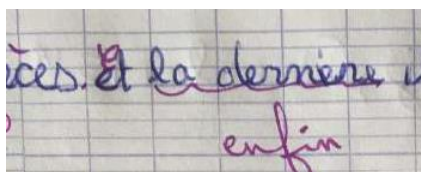 ices. Et la dernière
enfin